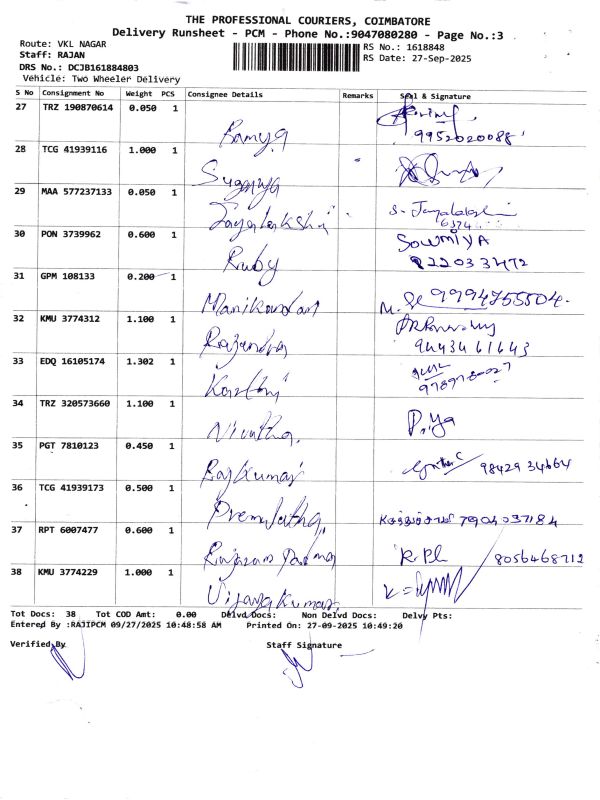 THE PROFESSIONAL COURIERS, COIMBATORE
Delivery Runsheet - PCM - Phone No.:9047080280 - Page No.:3
Route: VKL NAGAR
Staff: RAJAN
DRS No.: DCJB161884803
Vehicle: Two Wheeler Delivery
RS No.: 1618848
RS Date: 27-Sep-2025
S No Consignment No Weight PCS Consignee Details Remarks Seal & Signature
27 TRZ 190870614 0.050 1 Ramya 9952020088
28 TCG 41939116 1.000 1 Suganya
29 MAA 577237133 0.050 1 Jayalakshmi S. Jayalakshmi
6374
30 PON 3739962 0.600 1 Ruby SOWMIYA
822033472
31 GPM 108133 0.200 1 Manikandan 9994755504
32 KMU 3774312 1.100 1 Rajandran
9443461643
33 EDQ 16105174 1.302 1 Karthi
34 TRZ 320573660 1.100 1 Nivetha Priya
35 PGT 7810123 0.450 1 Rajkumar 9842934664
36 TCG 41939173 0.500 1 Premalatha 7904037184
37 RPT 6007477 0.600 1 8056468712
38 KMU 3774229 1.000 1 Vijayakumar
Tot Docs: 38 Tot COD Amt: 0.00 Delvd Docs: Non Delvd Docs: Delvy Pts:
Entered By :RAJIPCM 09/27/2025 10:48:58 AM Printed On: 27-09-2025 10:49:20
Verified By Staff Signature